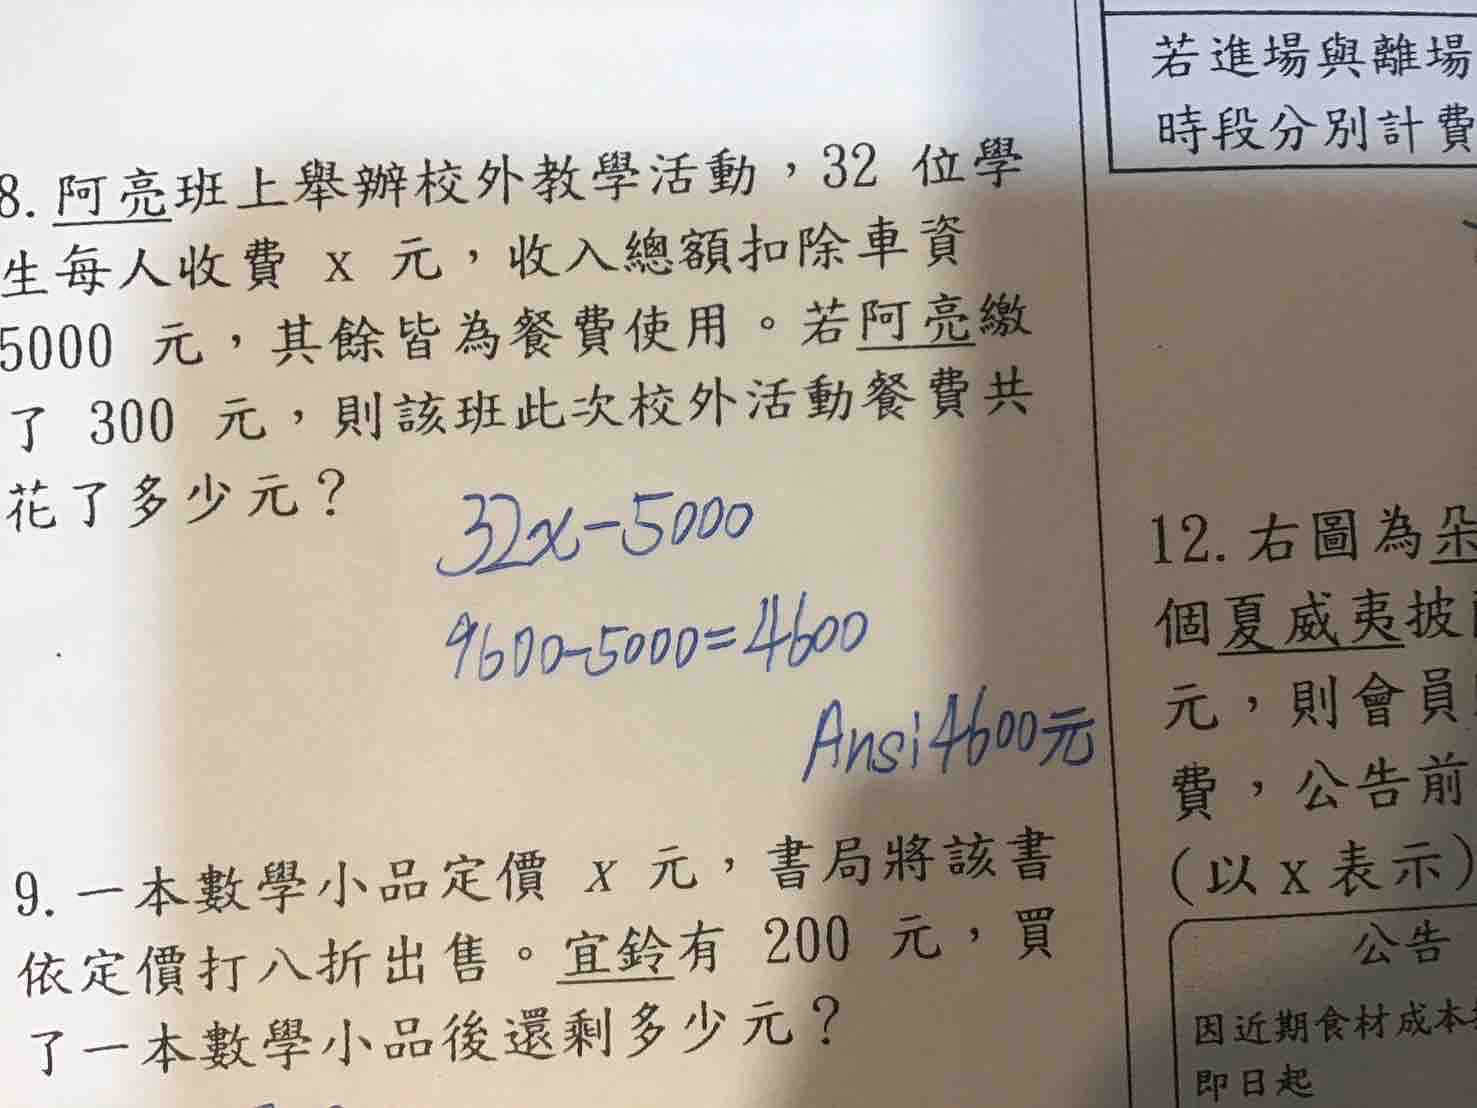 8. 阿亮班上舉辦校外教學活動，32 位學
生每人收費 x 元，收入總額扣除車資
5000 元，其餘皆為餐費使用。若阿亮繳
了 300 元，則該班此次校外活動餐費共
花了多少元？
32x-5000
9600-5000=4600
Ans:4600元
9. 一本數學小品定價 x 元，書局將該書
依定價打八折出售。宜鈴有 200 元，買
了一本數學小品後還剩多少元？
若進場與離場
時段分別計費
12. 右圖為朵
個夏威夷披
元，則會員
費，公告前
(以 x 表示)
公告
因近期食材成本
即日起